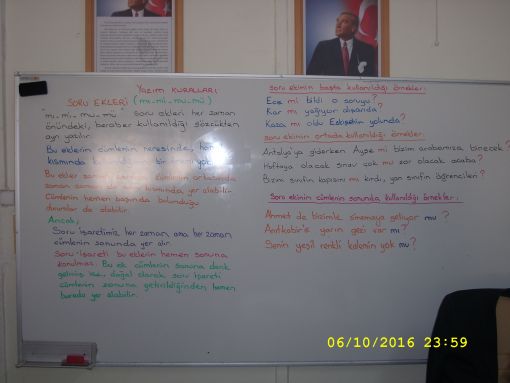 Yazım Kuralları
SORU EKLERİ (mı-mi-mu-mü)
"mı-mi-mu-mü" Soru ekleri her zaman
önündeki, beraber kullanıldığı sözcükten
ayrı yazılır.
Bu eklerin cümlenin neresinde, hangi
kısmında bir önemi yok
Bu ekler zaman cümlenin ortasında
zaman kısmında yer alabilir.
Cümlenin hemen başında bulunduğu
durumlar da olabilir.
Ancak;
Soru işaretimiz her zaman ama her zaman
cümlenin sonunda yer alır.
Soru işareti bu eklerin hemen sonuna
konulmaz. Bu ek cümlenin sonuna denk
gelmiş ise, doğal olarak soru işareti
cümlenin sonuna getirildiğinden hemen
burada yer alabilir.
Soru ekinin başta kullanıldığı örnekler:
Ece mi bildi o soruyu?
Kar mı yağıyor dışarıda?
Kaza mı oldu Eskişehir yolunda?
soru ekinin ortada kullanıldığı örnekler:
Antalya'ya giderken Ayşe mi bizim arabamıza binecek?
Haftaya olacak sınav çok mu zor olacak acaba?
Bizim sınıfın kapısını mı kırdı, yan sınıfın öğrencileri?
Soru ekinin cümlenin sonunda kullanıldığı örnekler:
Ahmet de bizimle sinemaya geliyor mu?
Anıtkabir'e yarın gezi var mı?
Senin yeşil renkli kalemin yok mu?
06/10/2016 23:59